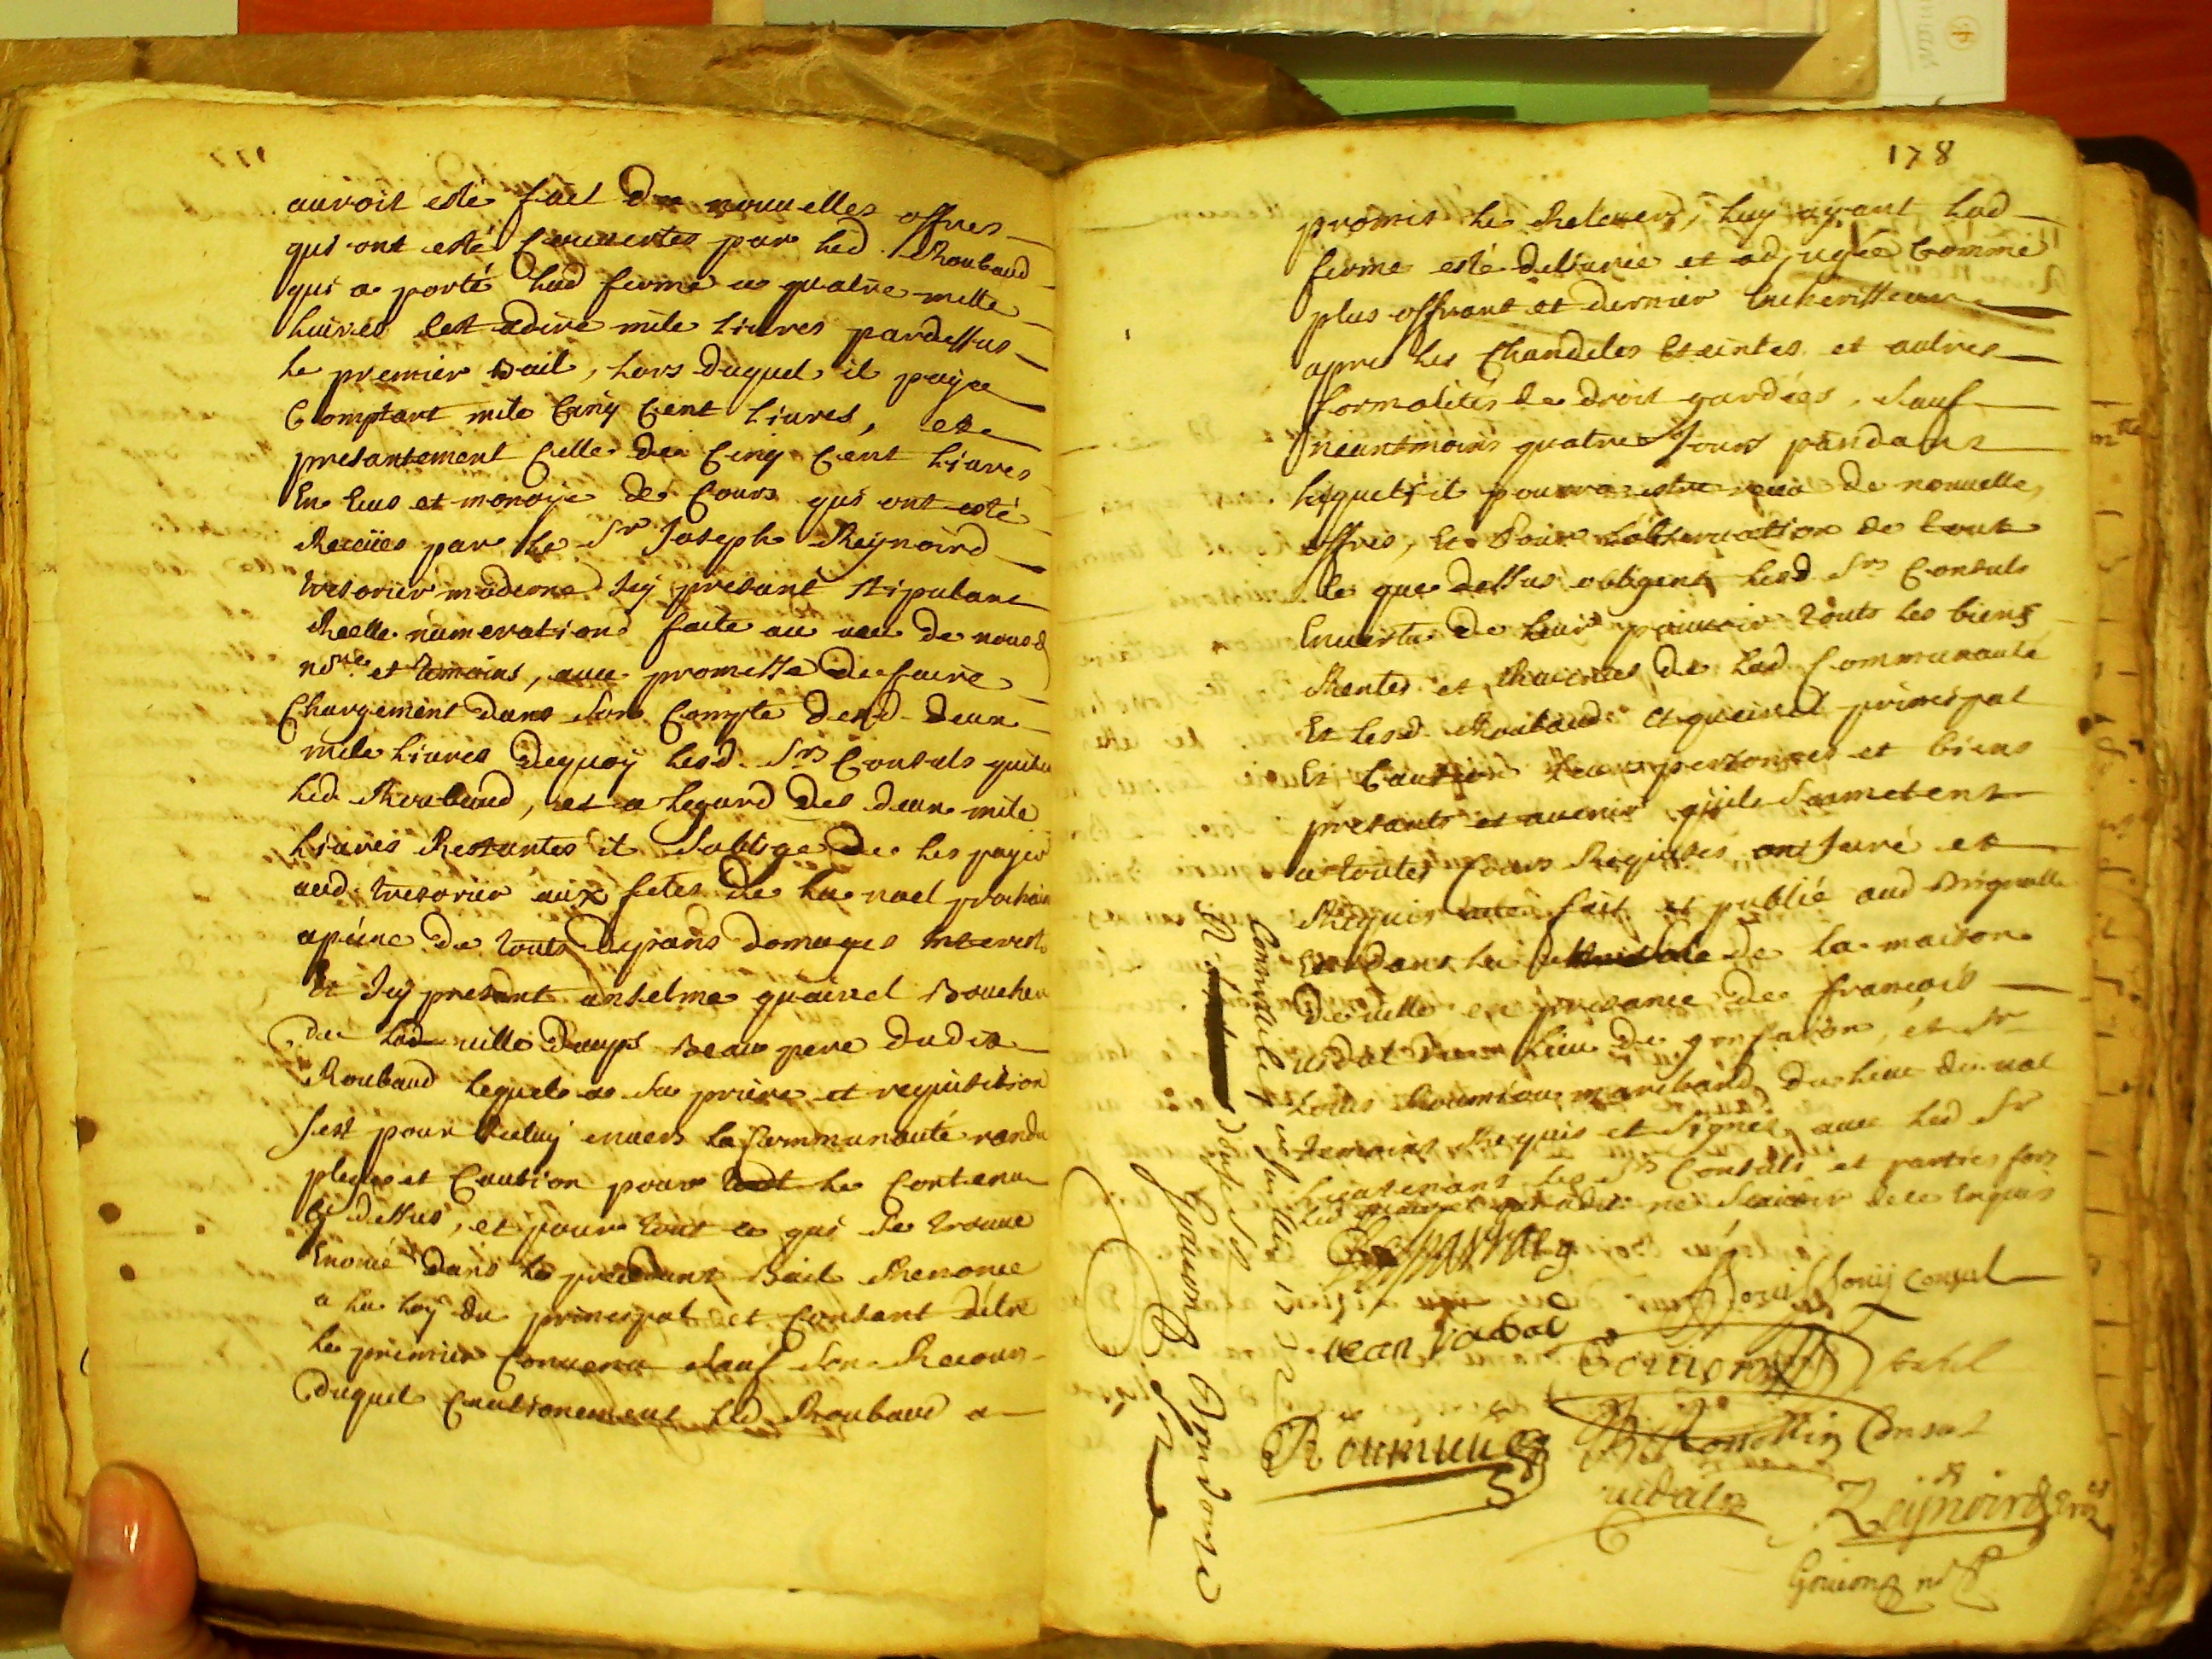 auroit esté fait de nouuelles offres
qui ont esté couuertes par led. Roubaud
qui a porté lad ferme a quatre mille
liures cest adire mile liures pardessus
le premier Bail, lors duquel il paya
Comptant mile Cinq Cent liures, et
presantement Celle de Cinq Cent liures
En Ecus et monoye de Cours qui ont esté
Receües par le Sr Joseph Reynoird
tresorier moderne Icy presant stipulant
Reelle numeration faite au ueu de nous
nore et temoins, auec promesse de faire
Chargement dans son Compte desd. deux
mile liures dequoy lesd. Srs Consuls
led. Roubaud, et a legard des deux mile
liures Restantes il soblige de les payer
aud. tresorier aux fetes de la noel prochain
apeine de touts depans domages Interests
Et Icy presant anselme quairel Boucher
de lad uille daups Beau pere dudit
Roubaud lequel a sa priere et requisition
sest pour Iceluy enuers la Communauté randu
plege et Caution pour tout le Contenu
Cy dessus, et pour tout ce qui se trouue
Enoncé dans le precedant Bail Renonce
a la loy du principal et Consant detre
le premier Conuenu sauf son Recours
duquel Cautionement led Roubaud a
178
promis le Releuer, luy ayant lad
ferme esté deliurée et adjugée Comme
plus offrant et dernier Encherisseur
apres les Chandeles Eteintes et autres
formalités de droit gardées, sauf
neantmoins quatre Jours pandant
lesquels il pourra estre receu de nouuelles
offres, Et Pour lobseruation de tout
Ce que dessus obligent lesd. Srs Consuls
Enuertu de leur pouuoir touts les biens
Rentes et Reuenus de lad. Communauté
Et lesd. Roubaud et quairel principal
Et Caution leurs personnes et biens
presants et auenir quils soumetent
a toutes Cours Requises ont Juré et
Requis acte fait et publié aud Brignolle
Et dans la de la maison
de uille en presance de francois
uidal du lieu de gonfaron, et Sr
Louis Roumieu marchand du lieu du ual
temoins Requis et signés auec led Sr
Lieutenant les Srs Consuls et parties fors
led quairel qui a dit ne scauoir de ce Enquis
Jean
Consul
Consul
Roumieu
Consul
uidal
Reynoird
Gouion nore
Gouion